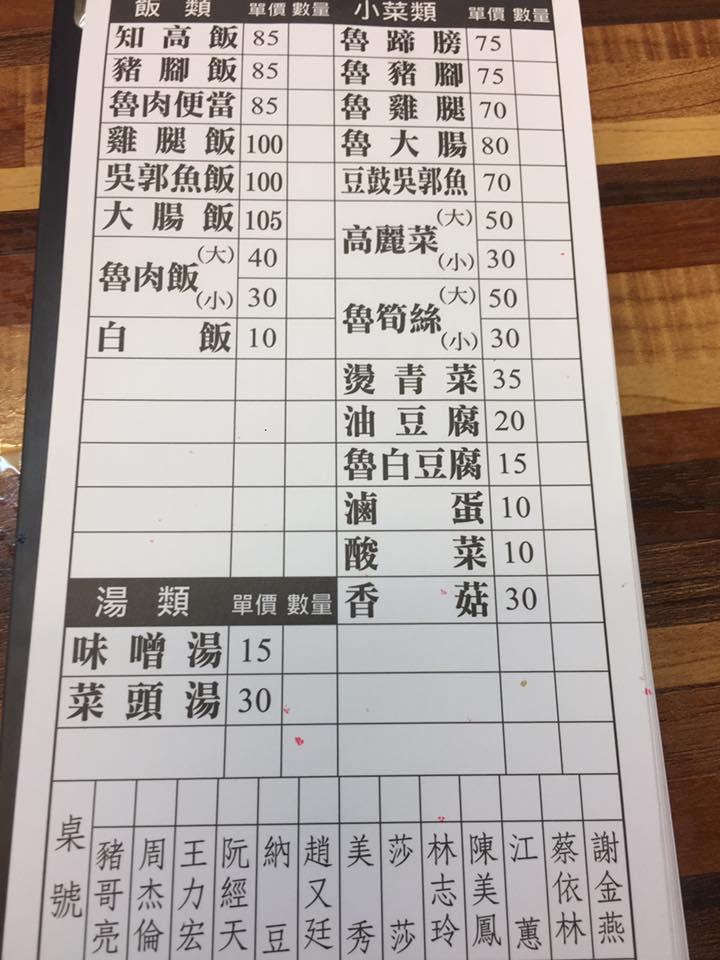 飯類 單價 數量
知高飯 85
豬腳飯 85
魯肉便當 85
雞腿飯 100
吳郭魚飯 100
大腸飯 105
魯肉飯 (大) 40
(小) 30
白飯 10
湯類 單價 數量
味噌湯 15
菜頭湯 30
小菜類 單價 數量
魯蹄膀 75
魯豬腳 75
魯雞腿 70
魯大腸 80
豆鼓吳郭魚 70
高麗菜 (大) 50
(小) 30
魯筍絲 (大) 50
(小) 30
燙青菜 35
油豆腐 20
魯白豆腐 15
滷蛋 10
酸菜 10
香菇 30
桌號
豬哥亮
周杰倫
王力宏
阮經天
納豆
趙又廷
美秀
莎莎
林志玲
陳美鳳
江蕙
蔡依林
謝金燕